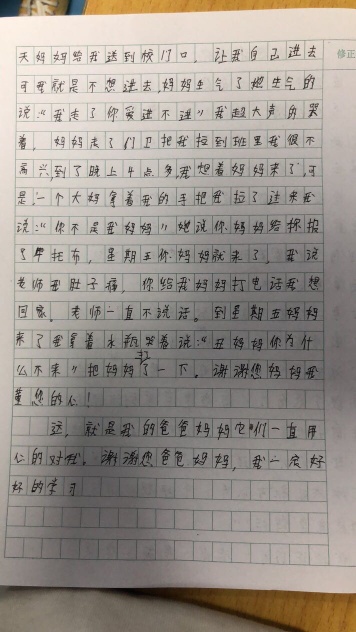 天妈妈给我送到校门口。让我自己进去
可我就是不想进去妈妈生气了她生气的
说:“我走了你爱进不进”我超大声的哭
着,妈妈走了门卫把我拉到班里我很不
高兴,到了晚上4点多,我想着妈妈来了,可
是一个大妈拿着我的手把我拉了过来我
说:“你不是我妈妈”她说你妈妈给你报
了早托布,星期五你妈妈就来了。我说
老师我肚子痛,你给我妈妈打电话我想
回家。老师一直不说话。到星期五妈妈
来了我拿着水瓶哭着说:“丑妈妈你为什
么不来”把妈妈打了一下。谢谢您妈妈我
董您的心!
这,就是我的爸爸妈妈它们一直用
心的对我。谢谢您爸爸妈妈,我一定好
好的学习
修正